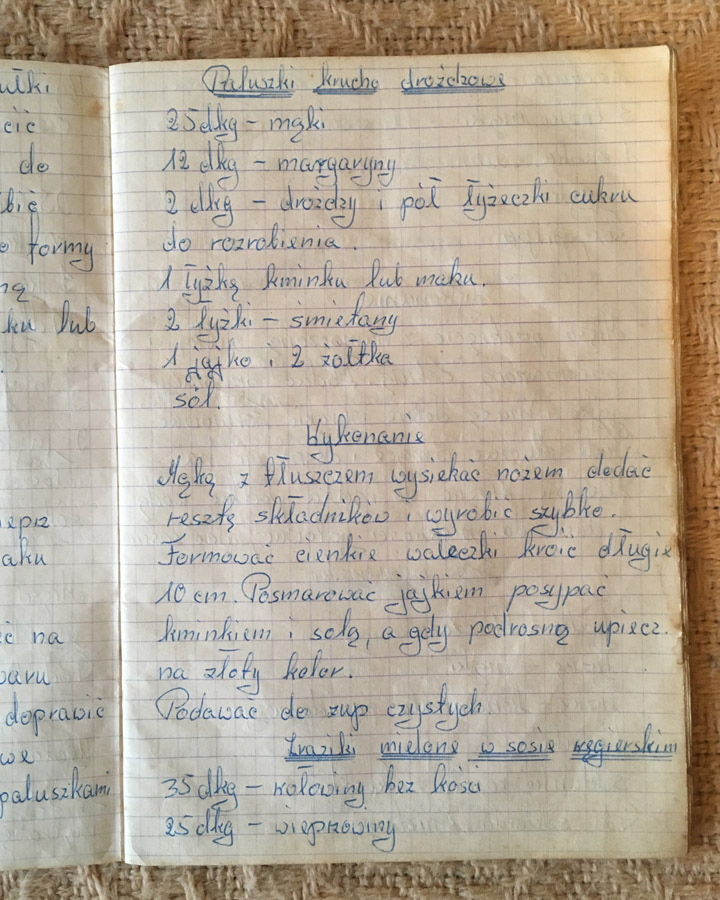 ułki
cić
do
bić
formy
ku lub
iepz
aku
ć na
waru
doprawić
we
pałuszkami
Pałuszki kruche drożdzowe
25 dkg – mąki
12 dkg – margaryny
2 dkg – drożdzy i pół łyżeczki cukru
do rozrobienia.
1 łyżką kminku lub maku.
2 łyżki – śmietany
1 jajko i 2 żołtka
sól.
Wykonanie
Mąką z tłuszczem wysiekać nożem dodać
resztę składników i wyrobić szybko.
Formować cienkie wałeczki kroić długie
10 cm. Posmarować jajkiem posypać
kminkiem i solą, a gdy podrosną upiecz.
na złoty kolor.
Podawać do zup czystych
Zraziki mielone w sosie węgierskim
35 dkg – wołowiny bez kości
25 dkg – wieprzowiny